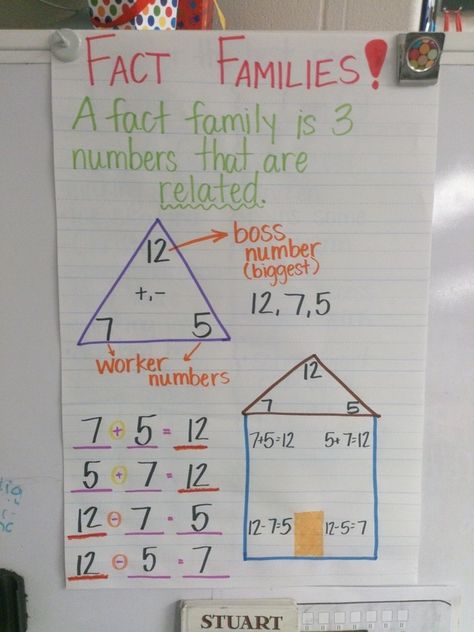 FACT FAMILIES!
A fact family is 3
numbers that are
related.
12
boss
number
(biggest)
+,-
12, 7, 5
7 5
worker
numbers
12
7 5
7 + 5 = 12
5 + 7 = 12
12 - 7 = 5
12 - 5 = 7
7+5=12 5+7=12
12-7=5 12-5=7
STUART